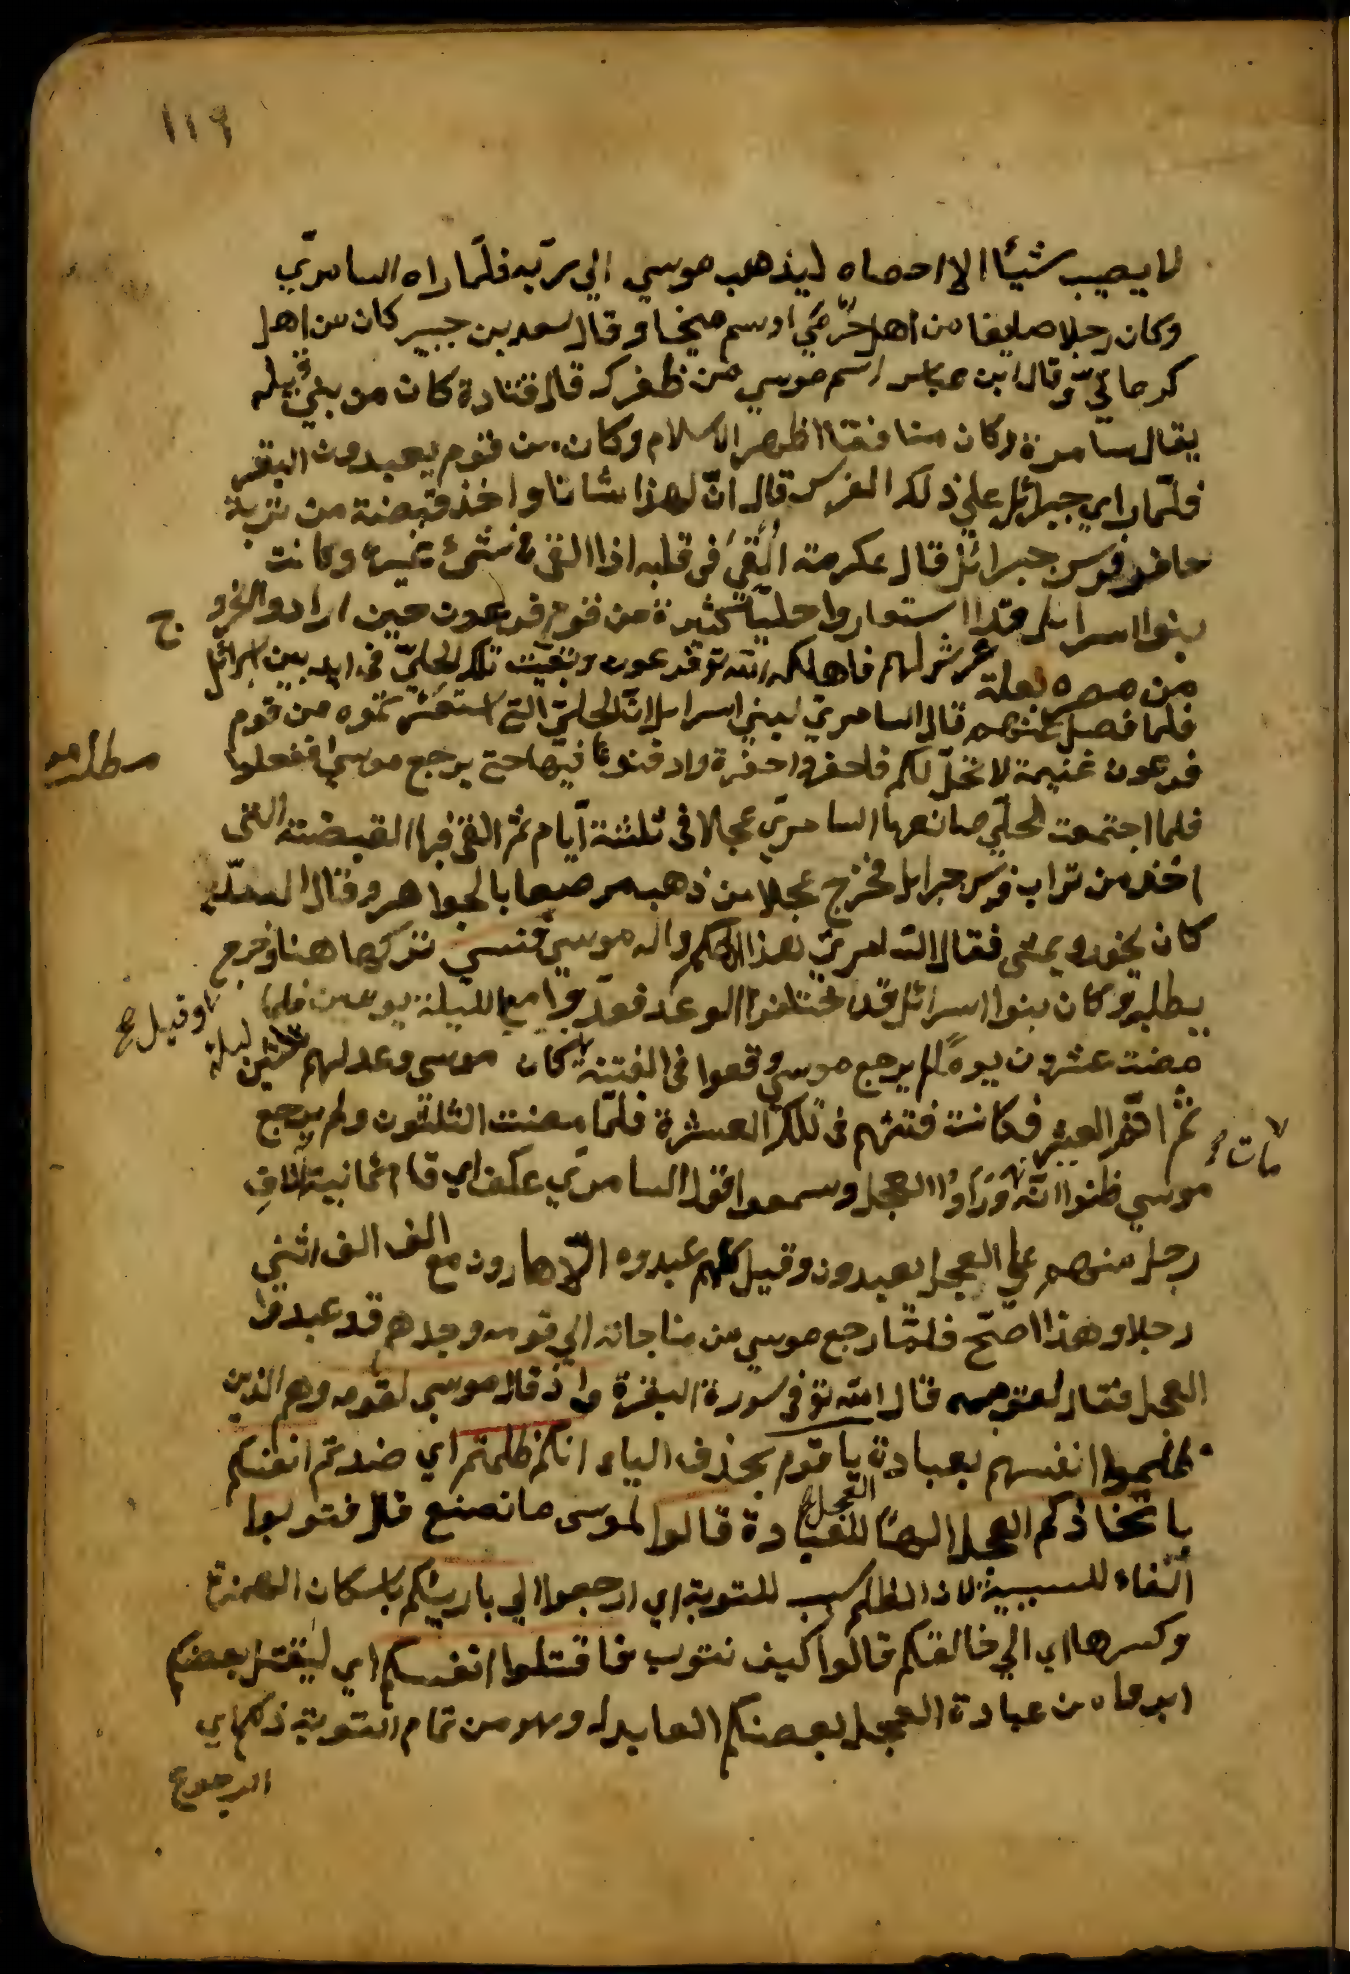 ١١٩
لا يصيب شيئا الا احصاه ليذهب موسي الي ربّه فلمّا راه السامريّ
وكان رجلا صايغا من اهل باجرمي اوسم ميخا وقال سعد بن جبير كان من اهل
كرماني وقال ابن عباس اسم موسي من ظفر كه قال قتادة كان من بني قبيله
يقال سامرة وكان منافقا اظهر الاسلام وكان من قوم يعبدون البقر
فلمّا راي جبرائل علي ذلك الفرس قال انّ لهذا شانا واخذ قبضة من تربة
حافر فرس جبرائل قال عكرمة اُلقِيَ في قلبه اذا القي في شئ غيره وكانت
بنوا اسرائل قد استعاروا حليّا كثيرة من قوم فرعون حين ارادوا الخرو
ج
من مصر بعلة عرش لهم فاهلك الله تو فرعون وبقيت تلك الحليّ في ايد بين اسرائل
فلما فصل عنهم قال السامريّ لبني اسرايل انّ الحليّ التي استعرتموه من قوم
فرعون غنيمة لا تحلّ لكم فاحفروا حفرة وادفنوها فيها حتي يرجع موسي ففعلوا
مطلب مو
فلما اجتمعت الحليّ صانعها السامريّ عجلا في ثلثة ايّام ثم القي فيها القبضة التي
اخذ من تراب فرس جبرايل فخرج عجلا من ذهب مرصعا بالجواهر وقال السدّي
كان يخور ويمشي فقال السامريّ هذا الهكم واله موسي فنسي تركها هنا وخرج
يطلبه وكان بنوا اسرائل قد اختلفوا الوعد فعدّوا مع الليلة يومين فلما
مضت عشرون يوما لم يرجع موسي وقعوا في الفتنة كان موسي وعد لهم ثلثين ليلة
وقيل
ثم اتمّها العشر فكانت فتنتهم في تلك العشرة فلمّا مضت الثلثون ولم يرجع
موسي ظنوا انّه مات ورَأوُا العجل وسمعوا قول السامري عكف اي قام ثمانية الافِ
رجل منهم علي العجل يعبدون وقيل كلهم عبدوه الّا هارون مع الف الف اثني
رجلا وهذا اصحّ فلمّا رجع موسي من مناجاته الي قومه وجدهم قد عبدوا
العجل فقال لقومه قال الله تو في سورة البقرة واذ قال موسي لقومه وهم الذين
ظلموا انفسهم بعبادة العجل يا قوم بحذف الياء انكم ظلمتم اي ضررتم انفسكم
باتخاذكم العجل الهًا للعبادة قالوا لموسي ما نصنع قال فتوبوا
الفاء للسببية لان الظلم سبب للتوبة اي ارجعوا الي بارئكم باسكان الهمزة
وكسرها اي الي خالقكم قالوا كيف نتوب فاقتلوا انفسكم اي ليقتل بعضكم
ابرماه من عبادة العجل بعضكم العابد له وهو من تمام التوبة ذلكم اي
الرجوع